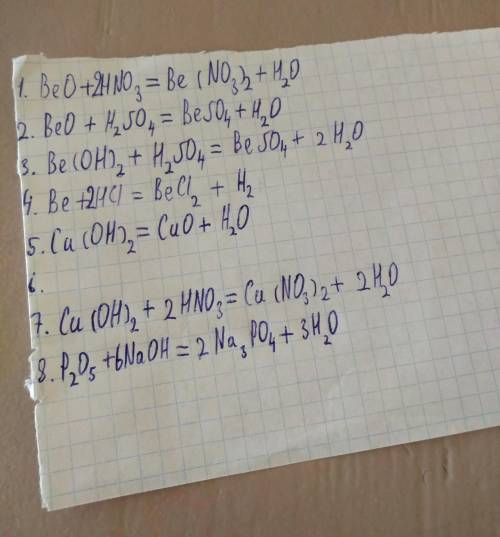 1. BeO + 2HNO₃ = Be(NO₃)₂ + H₂O
2. BeO + H₂SO₄ = BeSO₄ + H₂O
3. Be(OH)₂ + H₂SO₄ = BeSO₄ + 2H₂O
4. Be + 2HCl = BeCl₂ + H₂
5. Cu(OH)₂ = CuO + H₂O
6.
7. Cu(OH)₂ + 2HNO₃ = Cu(NO₃)₂ + 2H₂O
8. P₂O₅ + 6NaOH = 2Na₃PO₄ + 3H₂O